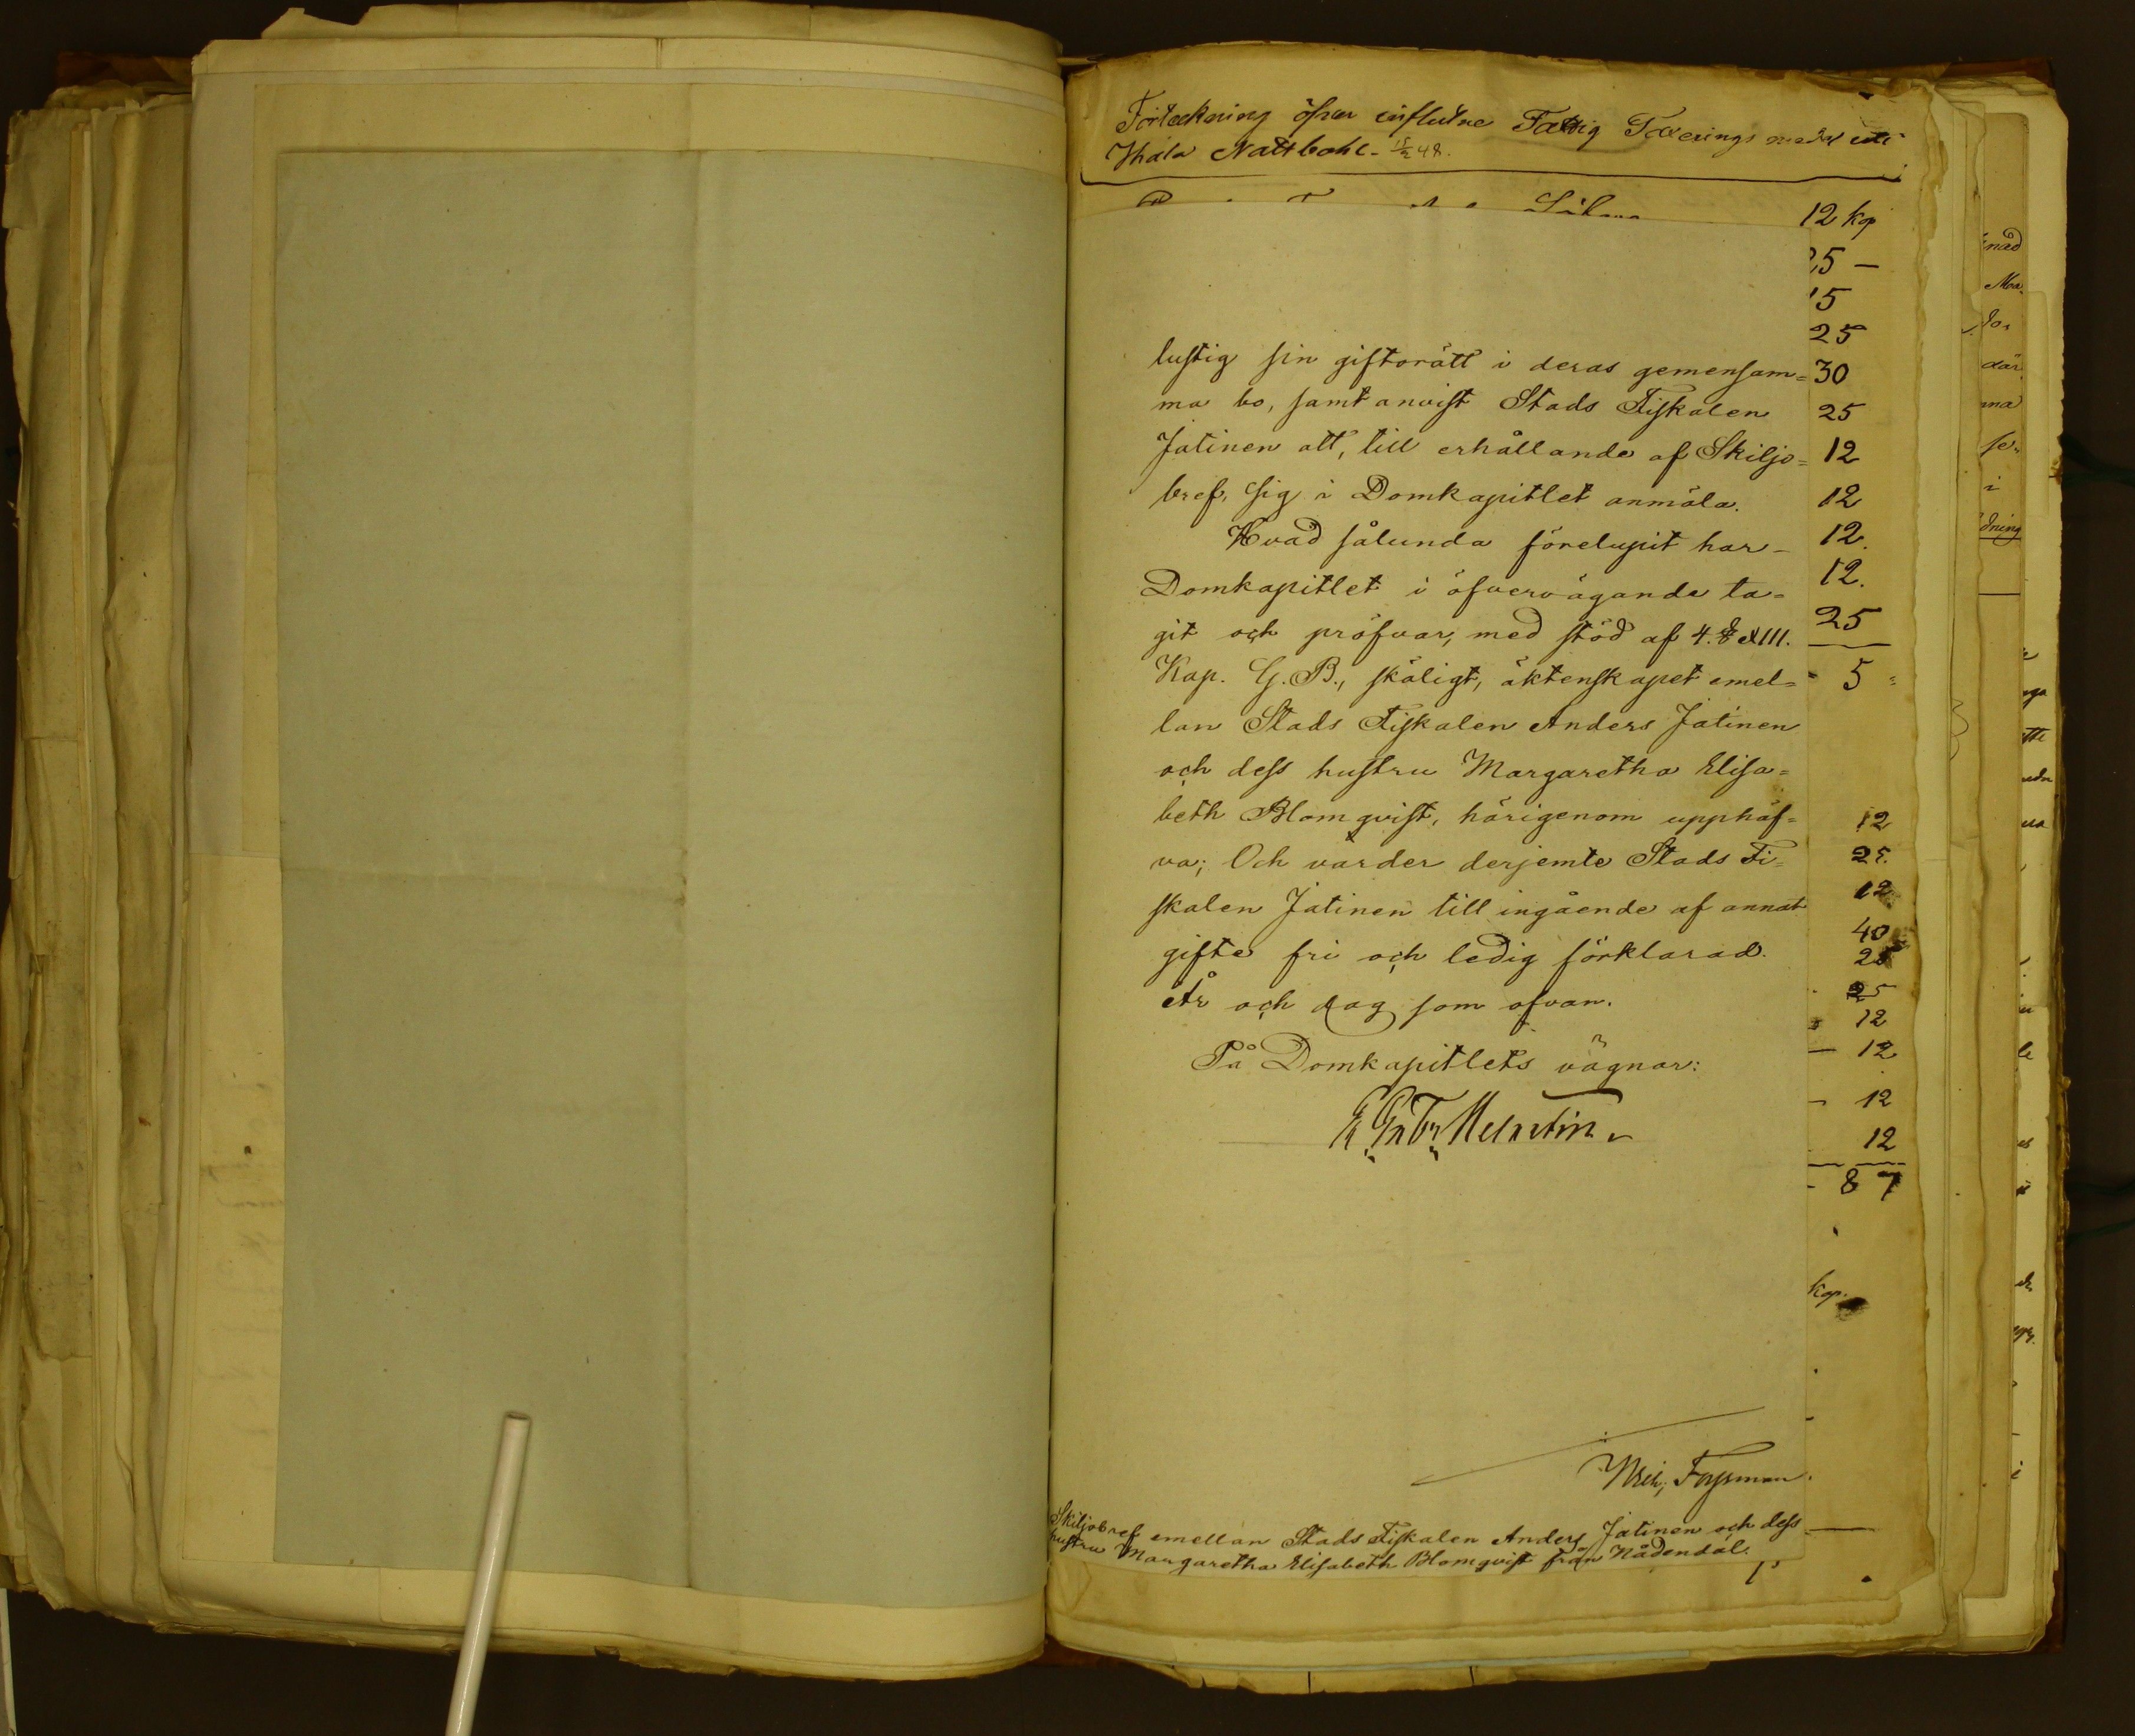 Förteckning öfver influtne Fattig Taxerings medel uti
Ihala Nattbohl. 15/2 48.
12 kop
25 —
15
25
lustig sin giftorätt i deras gemensam=
30
ma bo, samt anvist Stads Fiskalen
25
Jatinen att, till erhållande af Skiljo=
12
bref, sig i Domkapitlet anmäla.
12
Hvad sålunda förelupit har
12.
Domkapitlet i öfvervägande ta=
12.
git och pröfvar, med stöd af 4. § XIII.
25
Kap. G. B., skäligt, äktenskapet emel=
5
lan Stads Fiskalen Anders Jatinen
och dess hustru Margaretha Elisa=
beth Blomqvist, härigenom upphäf=
12
va; Och varder derjemte Stads Fi=
25.
skalen Jatinen till ingående af annat
12
40
gifte fri och ledig förklarad.
25
År och dag som ofvan.
25
12
På Domkapitlets vägnar:
— 12
— 12
12
87
kop.
Forsman.
Skiljobref emellan Stads Fiskalen Anders Jatinen och dess
hustru Margaretha Elisabeth Blomqvist från Nådendal.